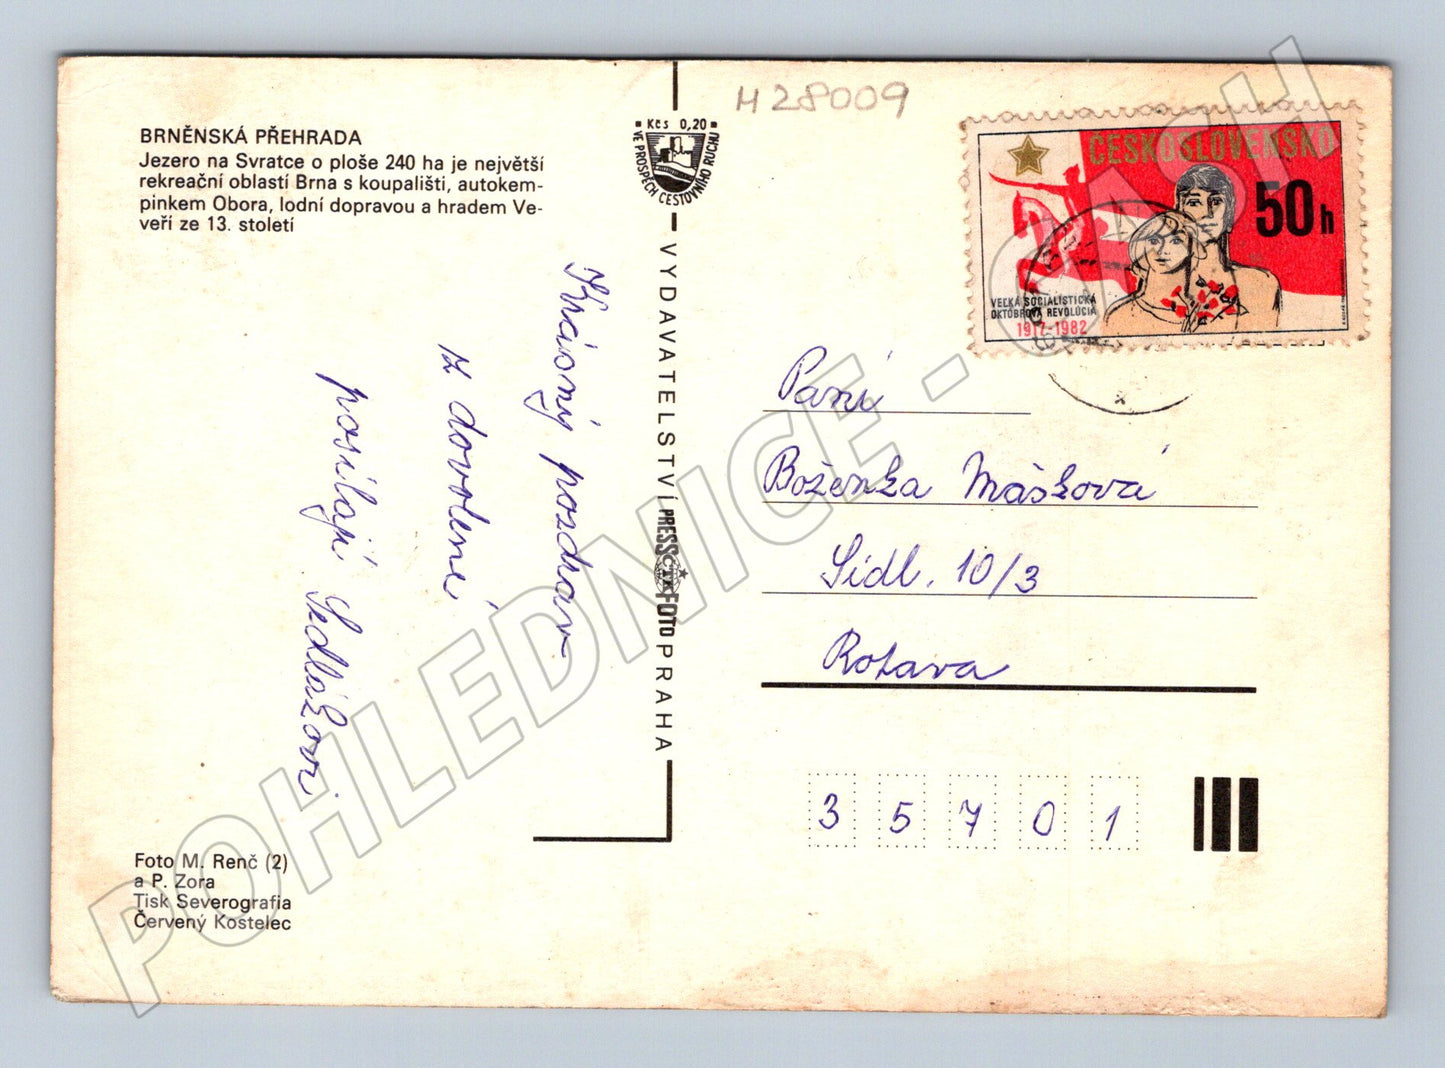 BRNĚNSKÁ PŘEHRADA
Jezero na Svratce o ploše 240 ha je největší
rekreační oblastí Brna s koupališti, autokem-
pinkem Obora, lodní dopravou a hradem Ve-
veří ze 13. století
Krásný pozdrav
z dovolené
posílají Sedláčkovi
Foto M. Renč (2)
a P. Zora
Tisk Severografia
Červený Kostelec
Kčs 0,20
VE PROSPĚCH CESTOVNÍHO RUCHU
VYDAVATELSTVÍ PRESSFOTO PRAHA
ČTK
H28009
ČESKOSLOVENSKO
50h
VEĽKÁ SOCIALISTICKÁ
OKTÓBROVÁ REVOLÚCIA
1917-1982
Paní
Boženka Mášková
Sídl. 10/3
Rotava
35701
POHLEDNICE - CASH